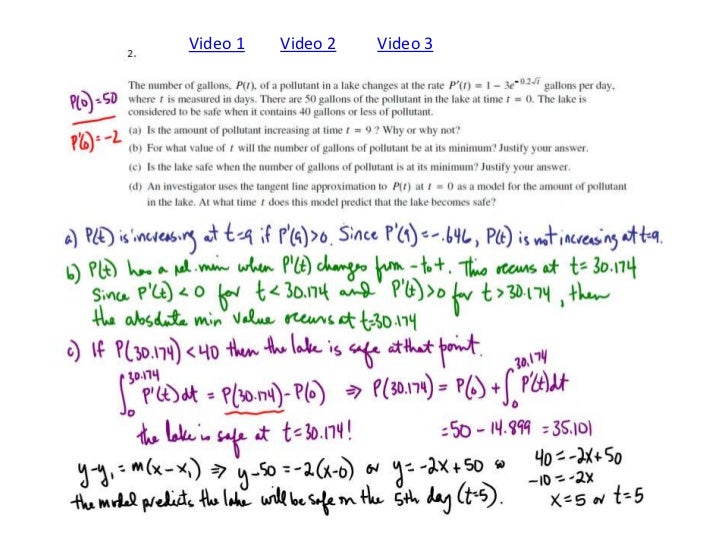 Video 1 Video 2 Video 3
2.
The number of gallons, P(t), of a pollutant in a lake changes at the rate P′(t) = 1 − 3e^−0.2√t gallons per day,
P(0)=50 where t is measured in days. There are 50 gallons of the pollutant in the lake at time t = 0. The lake is
considered to be safe when it contains 40 gallons or less of pollutant.
P'(0)=-2 (a) Is the amount of pollutant increasing at time t = 9 ? Why or why not?
(b) For what value of t will the number of gallons of pollutant be at its minimum? Justify your answer.
(c) Is the lake safe when the number of gallons of pollutant is at its minimum? Justify your answer.
(d) An investigator uses the tangent line approximation to P(t) at t = 0 as a model for the amount of pollutant
in the lake. At what time t does this model predict that the lake becomes safe?
a) P(t) is increasing at t=9 if P'(9)>0. Since P'(9)=-.646, P(t) is not increasing at t=9.
b) P(t) has a rel. min when P'(t) changes from - to +. This occurs at t= 30.174
Since P'(t) < 0 for t < 30.174 and P'(t)>0 for t > 30.174, then
the absolute min value occurs at t=30.174
c) If P(30.174) < 40 then the lake is safe at that point.
∫₀^30.174 P'(t)dt = P(30.174)-P(0) ⇒ P(30.174) = P(0) + ∫₀^30.174 P'(t)dt
the lake is safe at t=30.174! =50 - 14.899 = 35.101
y-y₁ = m(x-x₁) ⇒ y-50 = -2(x-0) or y = -2x+50 so 40 = -2x+50
-10 = -2x
the model predicts the lake will be safe on the 5th day (t=5). x=5 or t=5